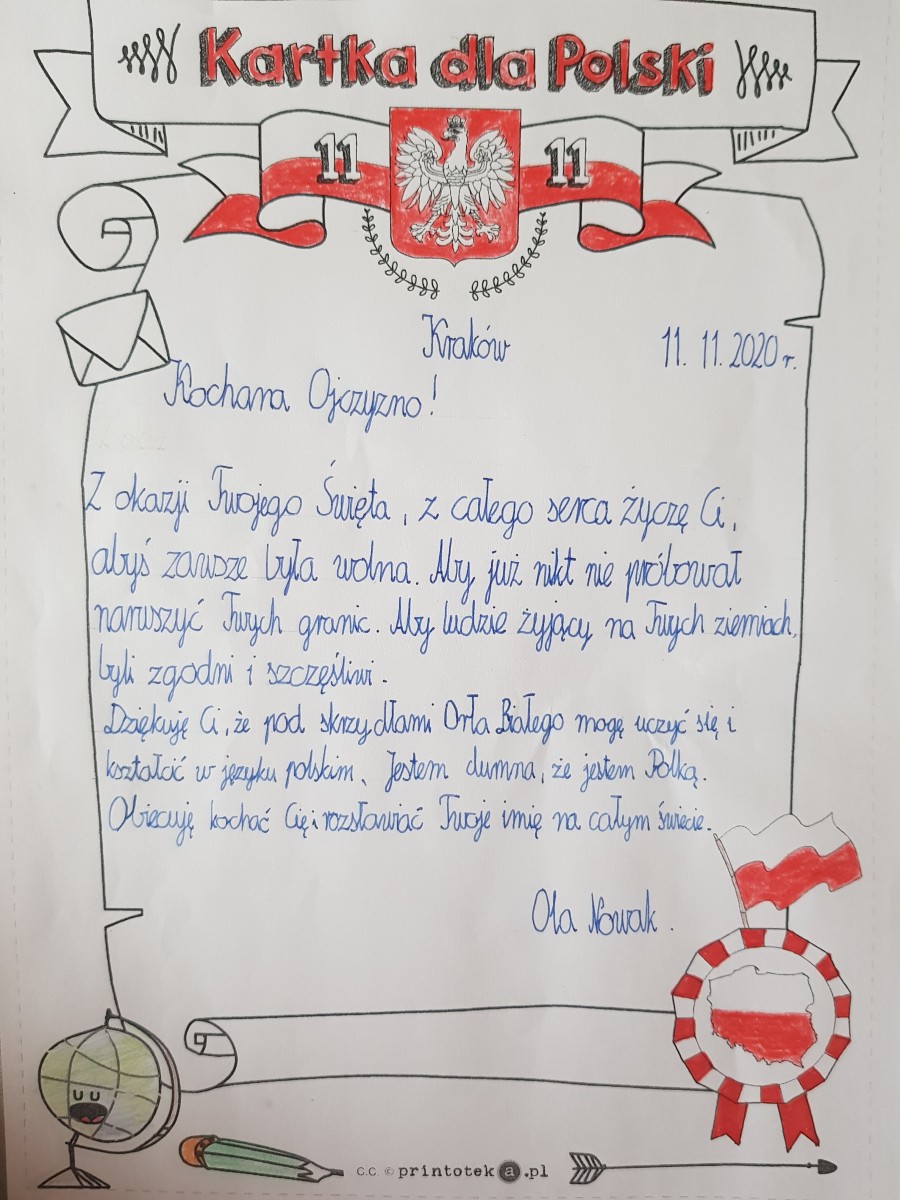 Kartka dla Polski
11 11
Kraków 11. 11. 2020 r.
Kochana Ojczyzno!
Z okazji Twojego Święta, z całego serca życzę Ci,
abyś zawsze była wolna. Aby już nikt nie próbował
naruszyć Twych granic. Aby ludzie żyjący na Twych ziemiach,
byli zgodni i szczęśliwi.
Dziękuję Ci, że pod skrzydłami Orła Białego mogę uczyć się i
kształcić w języku polskim. Jestem dumna, że jestem Polką.
Obiecuję kochać Cię i rozsławiać Twoje imię na całym świecie.
Ola Nowak.
c.c © printoteka.pl